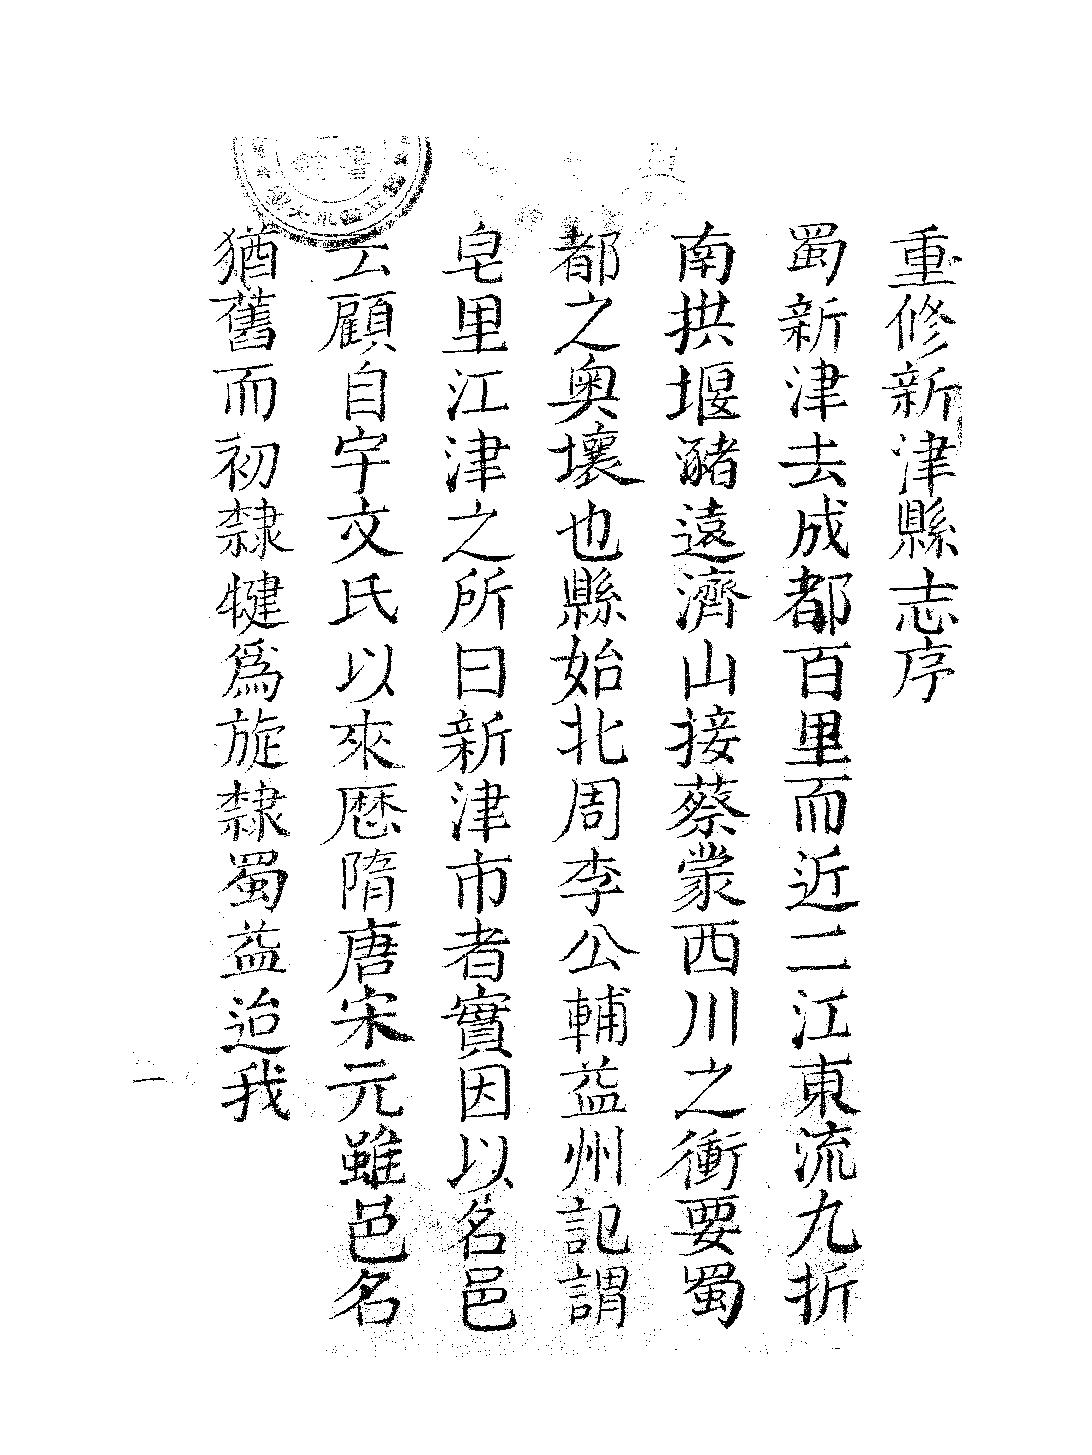 重修新津縣志序
蜀新津去成都百里而近二江東流九折
南拱堰豬遠濟山接蔡蒙西川之衝要蜀
都之奧壤也縣始北周李公輔益州記謂
皂里江津之所曰新津市者實因以名邑
云顧自宇文氏以來歷隋唐宋元雖邑名
猶舊而初隸犍爲旋隸蜀益迨我
一